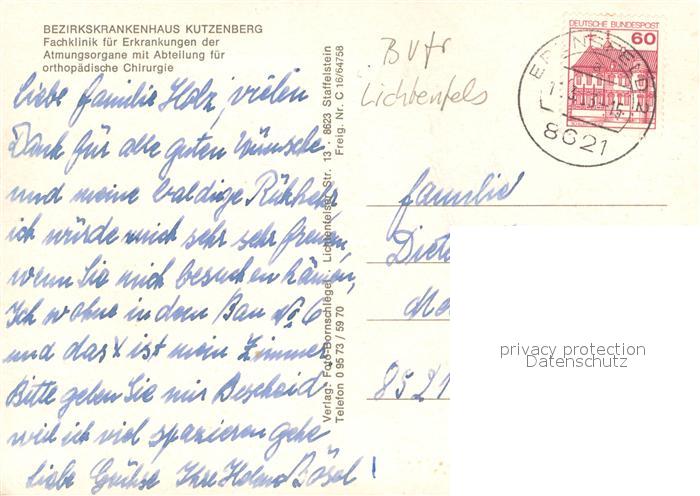 BEZIRKSKRANKENHAUS KUTZENBERG
Fachklinik für Erkrankungen der
Atmungsorgane mit Abteilung für
orthopädische Chirurgie
Liebe Familie Holz, vielen
Dank für alle guten Wünsche
und meine baldige Rükkehr
ich würde mich sehr sehr freuen,
wenn Sie mich besuchen kämen,
Ich wohne in dem Bau No 6
und das X ist mein Zimmer
Bitte geben Sie mir Bescheid
weil ich viel spazieren gehe
Liebe Grühse Ihre Bösel!
Verlag: Foto-Bornschlegel · Lichtenfelser Str. 13 · 8623 Staffelstein
Telefon 0 95 73 / 59 70
Freig. Nr. C 16/64758
Lichtenfels
DEUTSCHE BUNDESPOST
60
EBENSFELD 2
8621
Familie
Diete
8521
privacy protection
Datenschutz